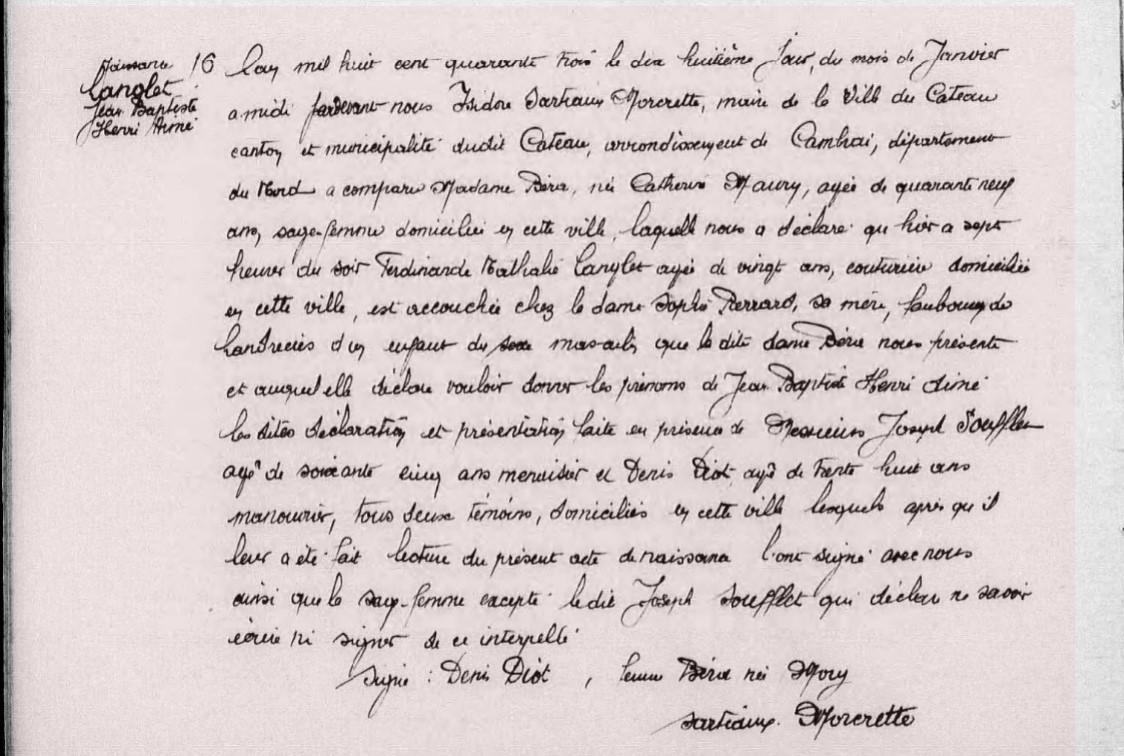 Naissance 16
Langlet
Jean Baptiste
Henri Aimé
L'an mil huit cent quarante trois le dix huitième jour, du mois de Janvier
a midi pardevant nous Isidore Sartiaux Morcrette, maire de la Ville du Cateau
canton et municipalité dudit Cateau, arrondissement de Cambrai, département
du Nord a comparu Madame Béra, née Catherine Maury, agée de quarante neuf
ans, sage-femme domiciliée en cette ville, laquelle nous a déclaré qu'hier a sept
heures du soir Ferdinande Nathalie Langlet agée de vingt ans, couturière domiciliée
en cette ville, est accouchée chez la dame Sophie Perrard, sa mère, faubourg de
Landrecies d'un enfant du sexe masculin que la dite dame Béra nous présente
et auquel elle déclare vouloir donner les prénoms de Jean Baptiste Henri Aimé
les dites déclaration et présentation faite en présence de Messieurs Joseph Soufflet
agé de soixante cinq ans menuisier et Denis Diot, agé de trente huit ans
manouvrier, tous deux témoins, domiciliés en cette ville lesquels après qu'il
leur a été fait lecture du présent acte de naissance l'ont signé avec nous
ainsi que la sage-femme excepté ledit Joseph Soufflet qui déclare ne savoir
écrire ni signer de ce interpellé
Signé : Denis Diot, femme Béra née Mory
Sartiaux Morcrette